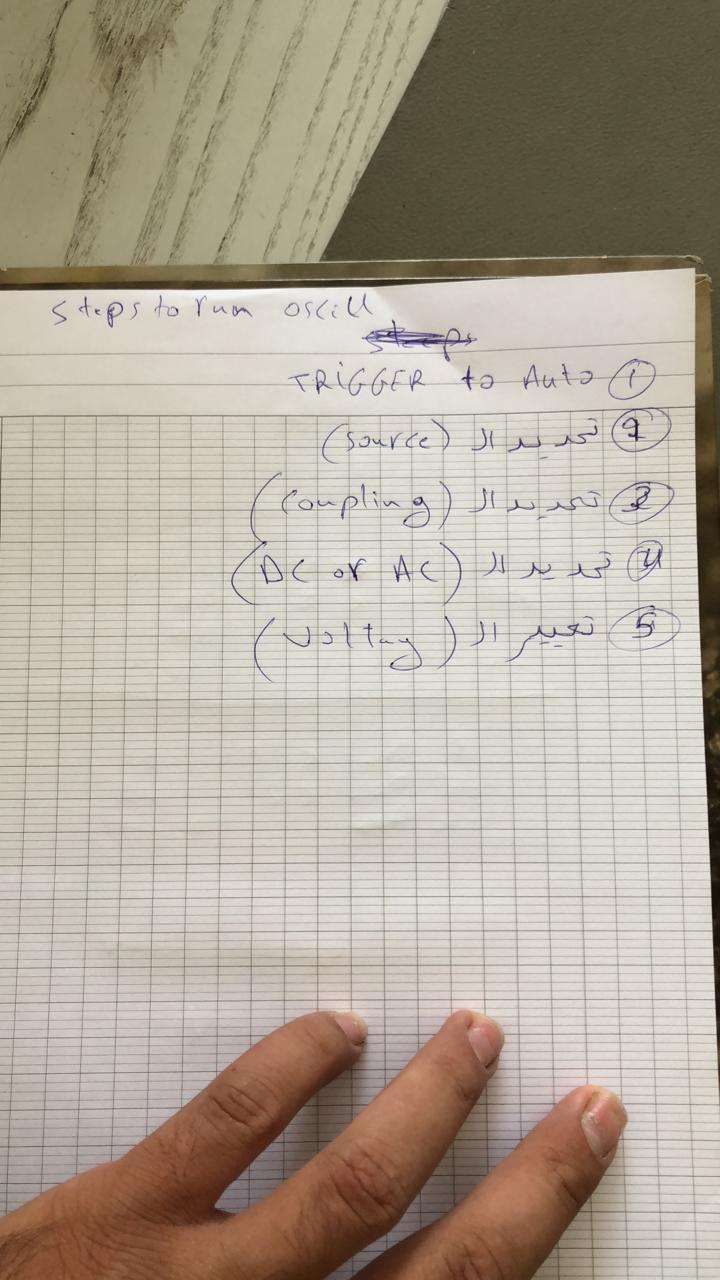 Steps to run oscill
TRIGGER to Auto ①
② تحديد الـ (source)
③ تحديد الـ (coupling)
④ تحديد الـ (DC or AC)
⑤ تعيير الـ (Voltag)